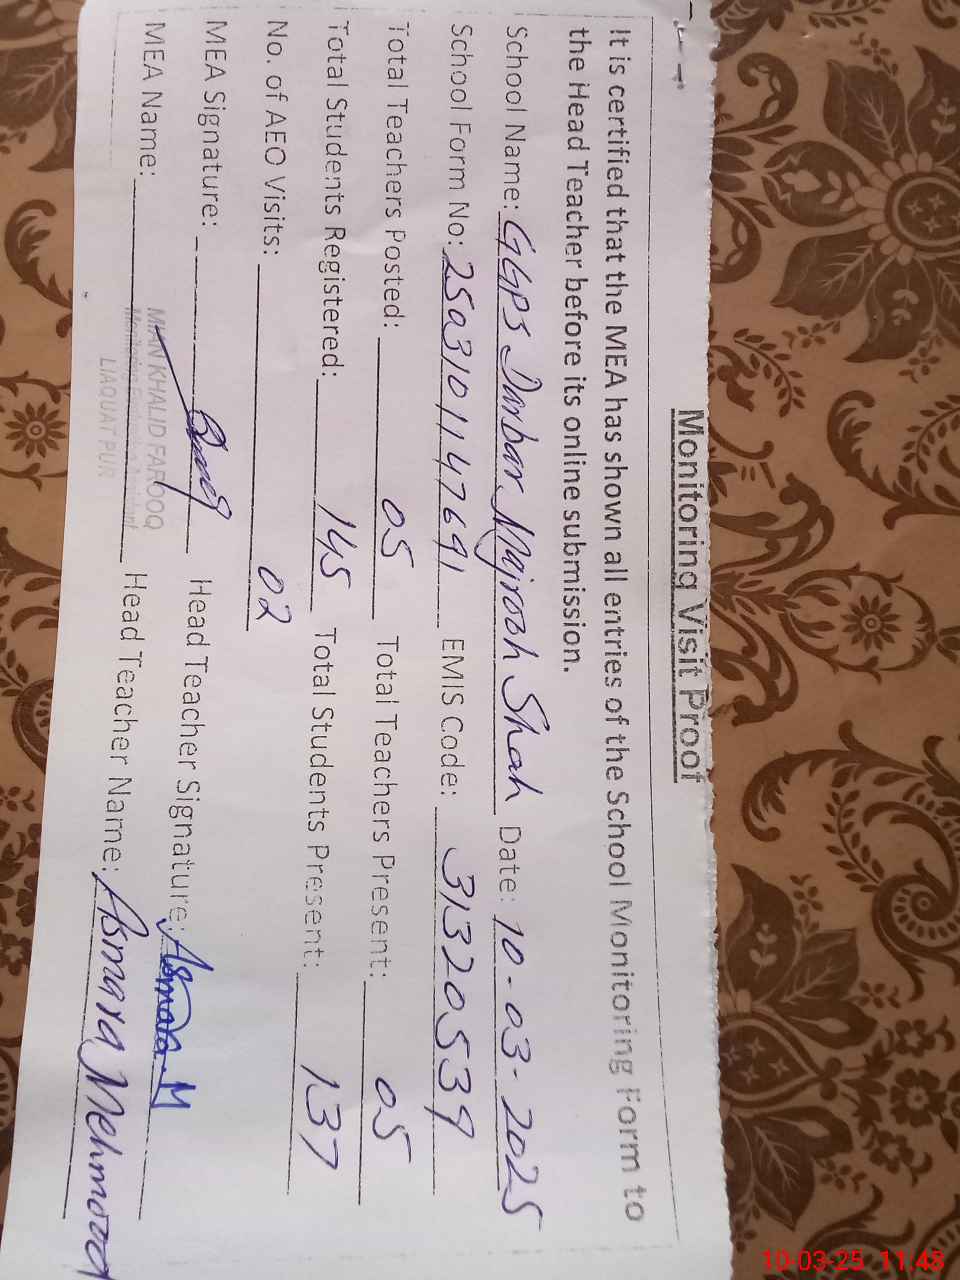 Monitoring Visit Proof
It is certified that the MEA has shown all entries of the School Monitoring Form to
the Head Teacher before its online submission.
School Name: GGPS Darbar Majrooh Shah Date: 10-03-2025
School Form No: 25a31011 4769 EMIS Code: 31320539
Total Teachers Posted: 05 Total Teachers Present: 05
Total Students Registered: 145 Total Students Present: 137
No. of AEO Visits: 02
MEA Signature: Head Teacher Signature: Asmara.M
MEA Name: MIAN KHALID FAROOQ Head Teacher Name: Asmara Mehmood
LIAQUAT PUR
10-03-25 11:48